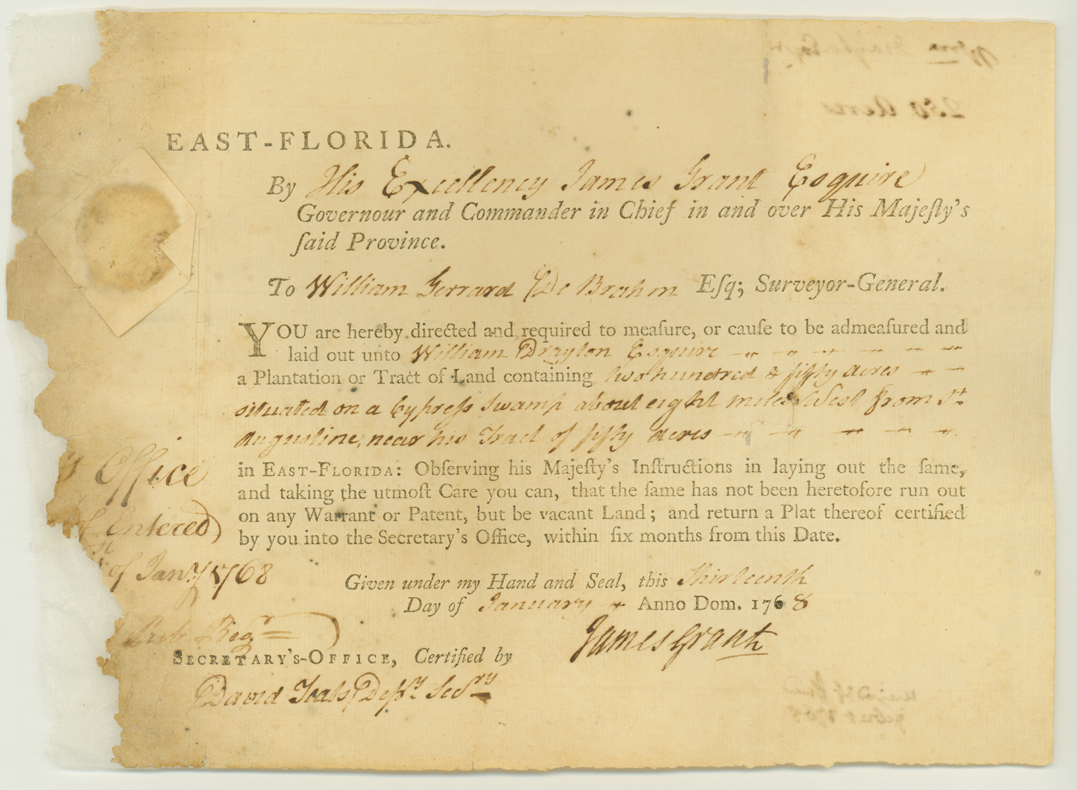 EAST-FLORIDA.
By His Excellency James Grant Esquire
Governour and Commander in Chief in and over His Majeſty's
ſaid Province.
To William Gerrard De Brahm Eſq; Surveyor-General.
YOU are hereby directed and required to meaſure, or cauſe to be admeaſured and
laid out unto William Drayton Esquire
a Plantation or Tract of Land containing two hundred & fifty acres
situated on a Cypreſs Swamp about eight miles West from St
Augustine, near his Tract of fifty acres
in EAST-FLORIDA: Obſerving his Majeſty's Inſtructions in laying out the ſame,
and taking the utmoſt Care you can, that the ſame has not been heretofore run out
on any Warrant or Patent, but be vacant Land; and return a Plat thereof certified
by you into the Secretary's Office, within ſix months from this Date.
Given under my Hand and Seal, this Thirteenth
Day of January Anno Dom. 1768
James Grant
Office
Entered
of Janry 1768
Pub. Regr
SECRETARY'S-OFFICE, Certified by
David Yeats Depy Secry
250 Acres